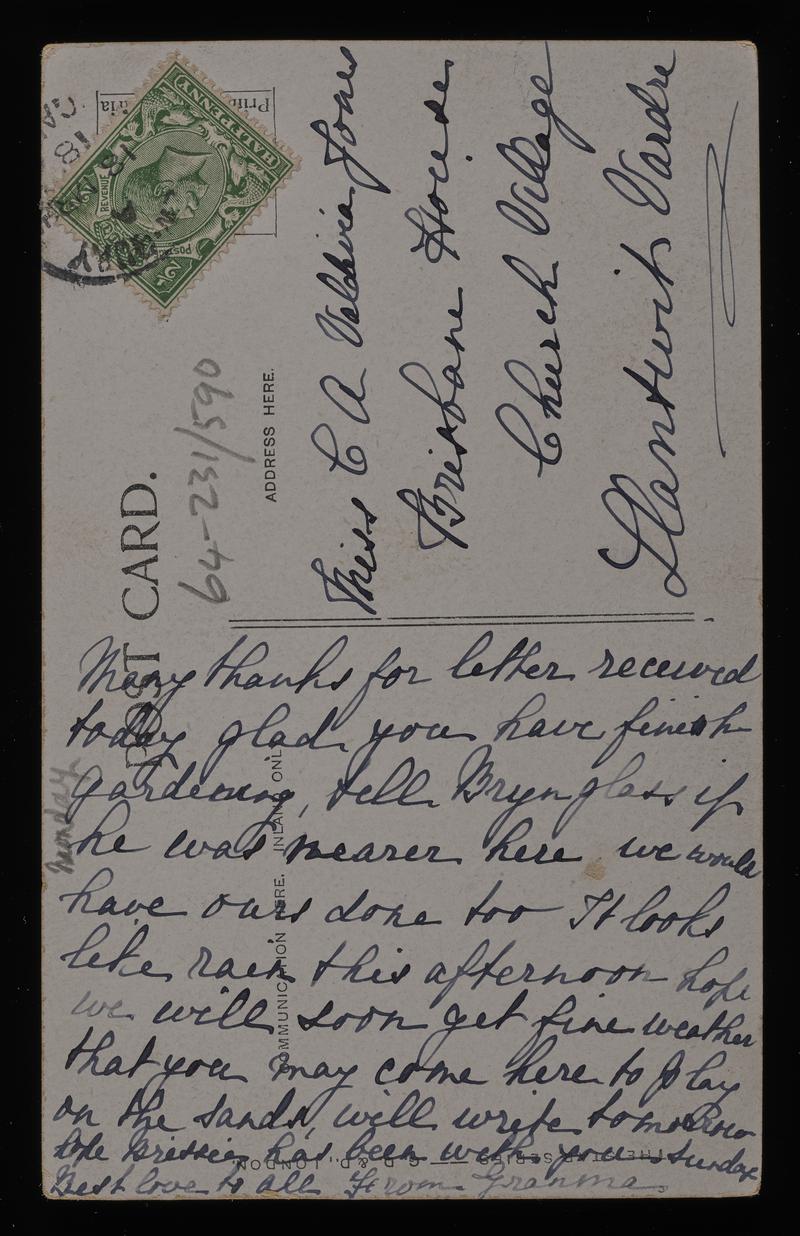 POST CARD.
64-231/590
ADDRESS HERE.
Miss C A Valdivia Jones
Brisbane House
Church Village
Llantwit Vardre
HALFPENNY
REVENUE
POST
COMMUNICATION HERE. INLAND ONLY
Monday
Many thanks for letter received
today glad you have finish
gardening, tell Brynglass if
he was nearer here we would
have ours done too It looks
like rain this afternoon hope
we will soon get fine weather
that you may come here to play
on the sands, will write tomorrow
hope Brissie has been with you Sunday
Best love to all From Granma
LONDON